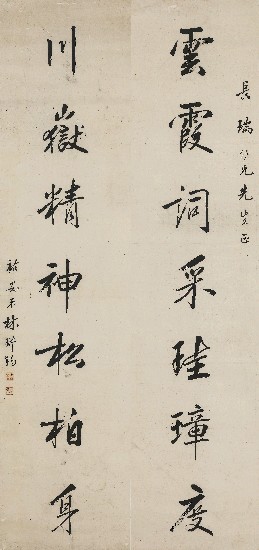 長瑞仁兄先生正
雲霞詞采珪璋度
川嶽精神松柏身